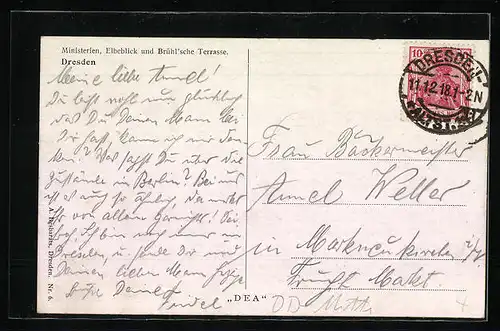 Ministerien, Elbeblick und Brühl'sche Terrasse.
Dresden
Meine liebe Annel!
Du bist wohl nun glücklich
daß Du Deinen Mann bei
Dir hast, kann ich mir den-
ken? Was sagst Du über die
Zustände in Berlin? Bei uns
ist es auch so ähnlich, da unter
von allem
ich bin noch immer in
Dresden, u. sende Dir und
Deinem lieben Mann
Deine
Friedel
A. Dresden. Nr. 6.
„DEA"
10
DRESDEN-
11.12.18.1-2N
ALTST.
Frau Bäckermeister
Annel Weller
in Markneukirchen i/V.
Frucht Markt.